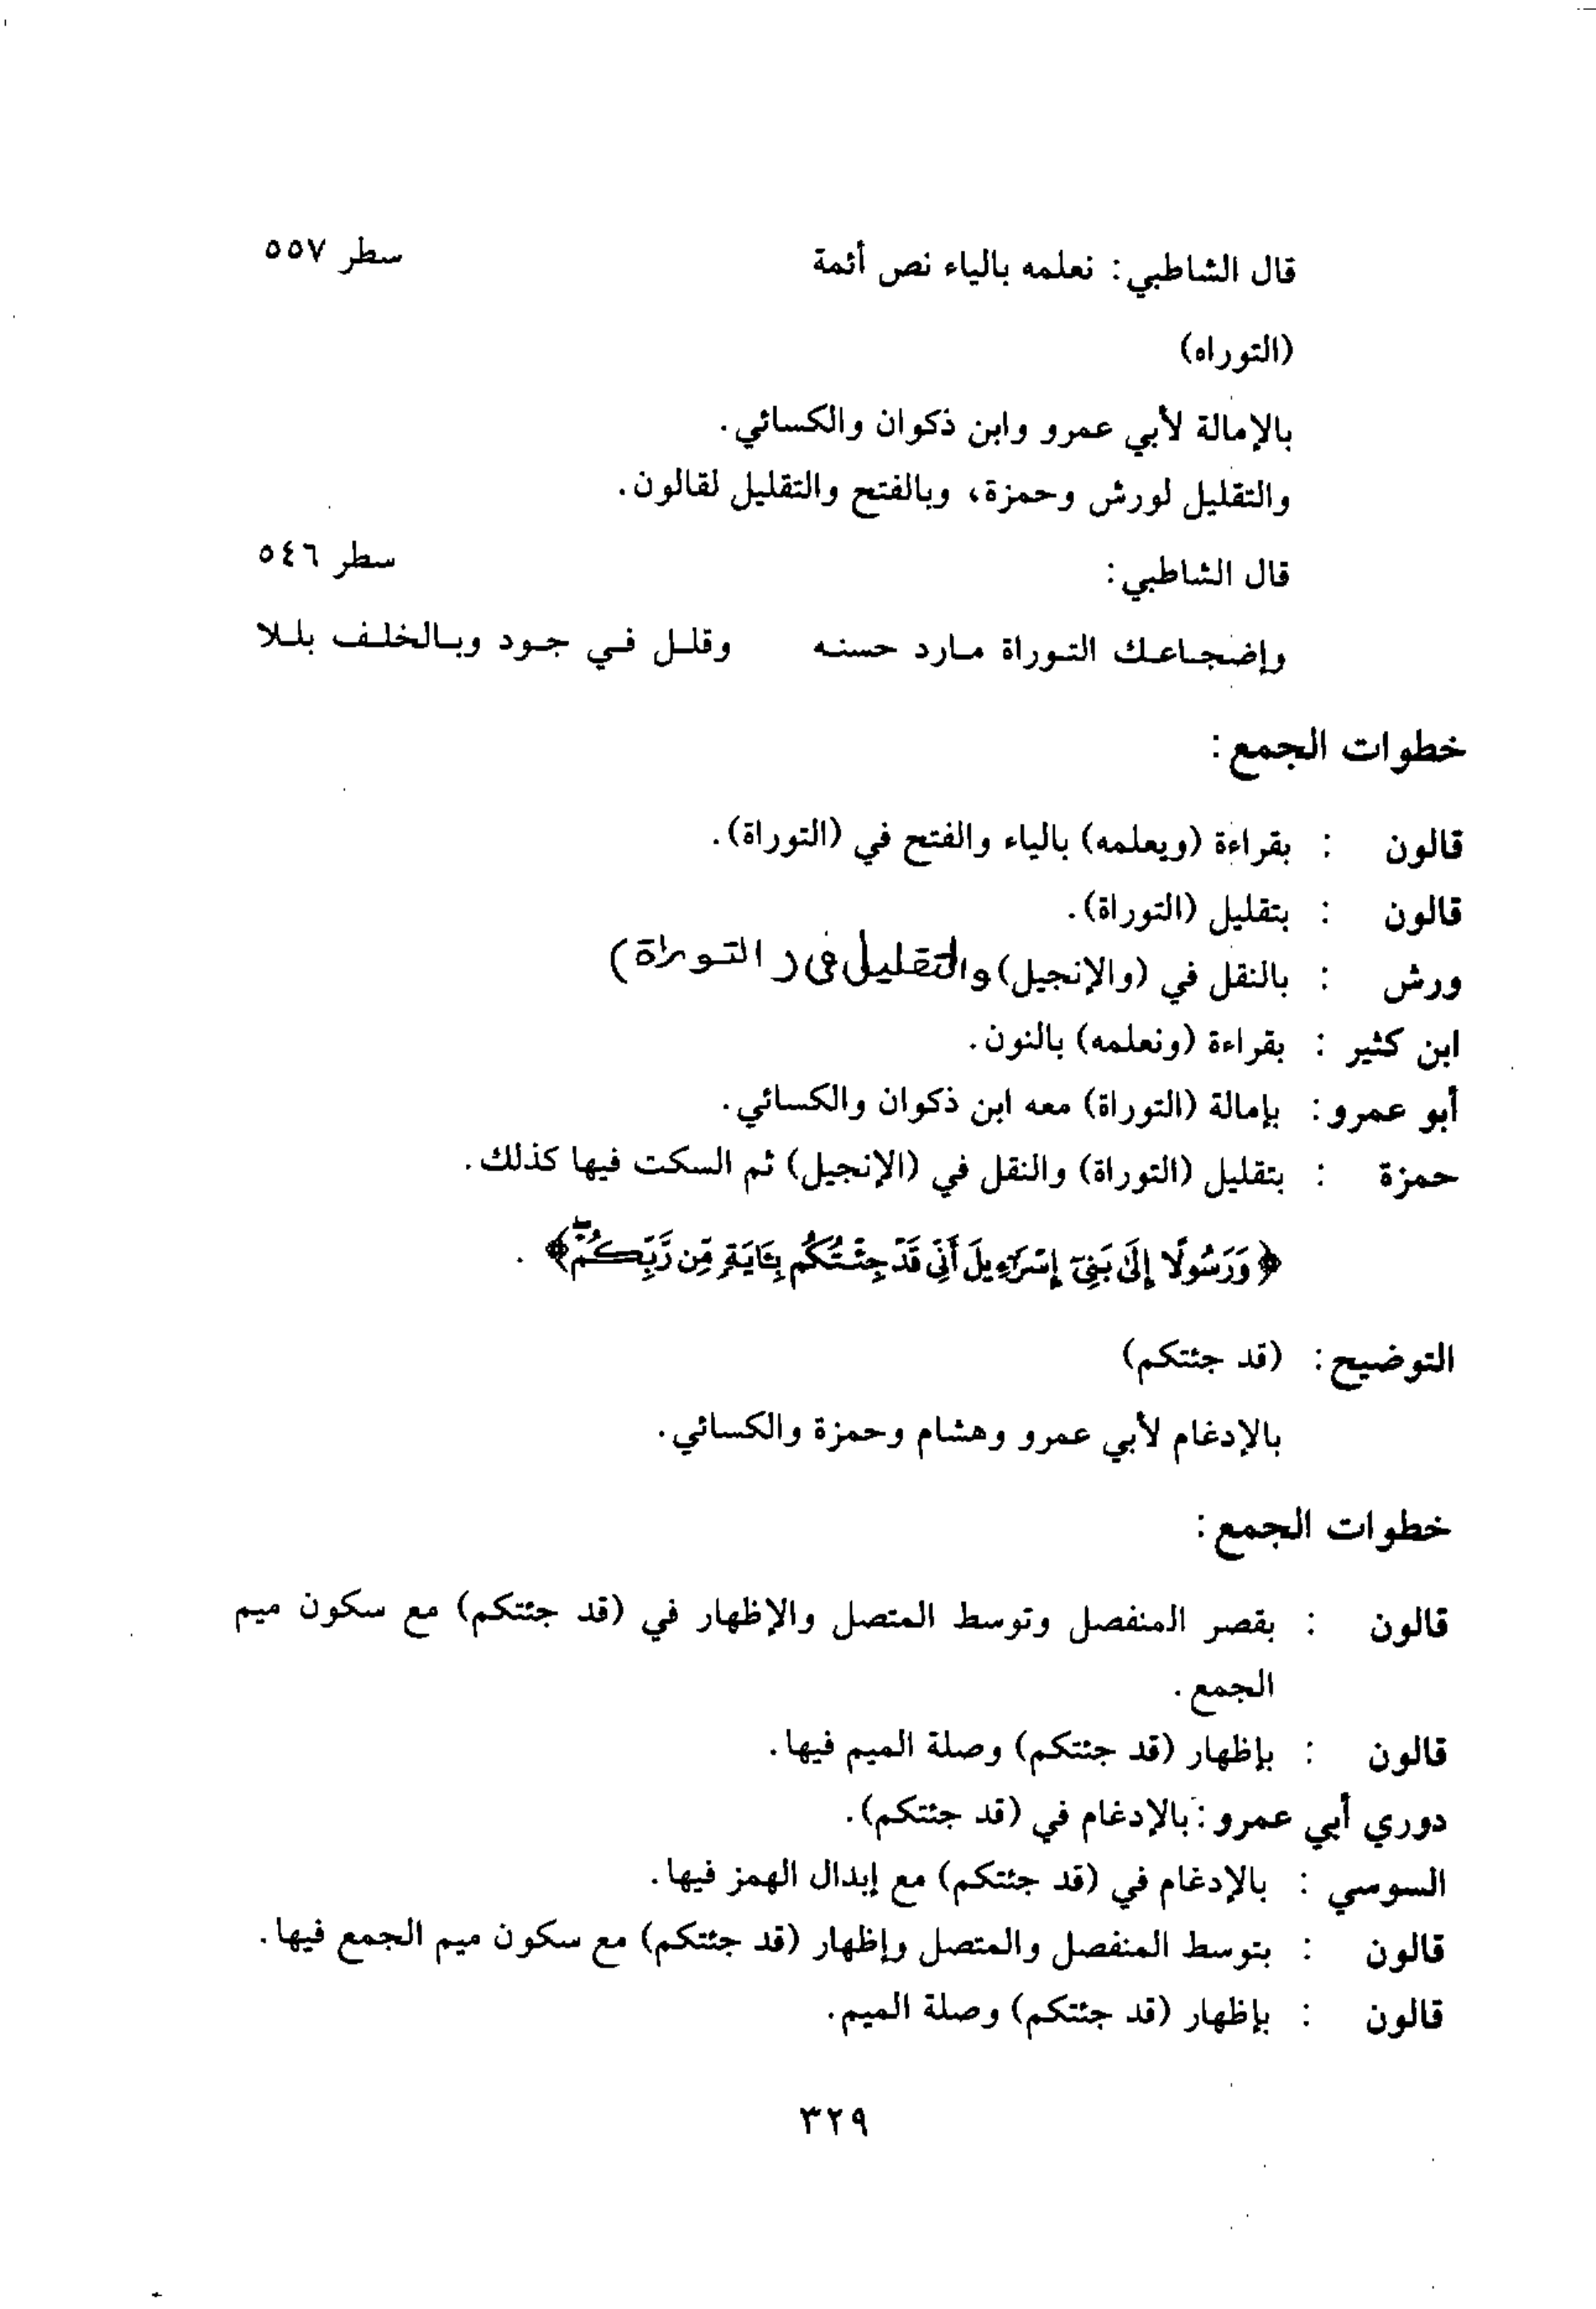 قال الشاطبي: نعلمه بالياء نص أئمة سطر ٥٥٧
(التوراه)
بالإمالة لأبي عمرو وابن ذكوان والكسائي.
والتقليل لورش وحمزة، وبالفتح والتقليل لقالون.
قال الشاطبي: سطر ٥٤٦
وإضجاعك التوراة مارد حسنه وقلل في جود وبالخلف بللا
خطوات الجمع:
قالون : بقراءة (ويعلمه) بالياء والفتح في (التوراة).
قالون : بتقليل (التوراة).
ورش : بالنقل في (والإنجيل) والتقليل في (التوراة)
ابن كثير : بقراءة (ونعلمه) بالنون.
أبو عمرو: بإمالة (التوراة) معه ابن ذكوان والكسائي.
حمزة : بتقليل (التوراة) والنقل في (الإنجيل) ثم السكت فيها كذلك.
﴿وَرَسُولًا إِلَىٰ بَنِىٓ إِسْرَٰٓءِيلَ أَنِّى قَدْ جِئْتُكُم بِـَٔايَةٍ مِّن رَّبِّكُمْۖ﴾.
التوضيح: (قد جئتكم)
بالإدغام لأبي عمرو وهشام وحمزة والكسائي.
خطوات الجمع:
قالون : بقصر المنفصل وتوسط المتصل والإظهار في (قد جئتكم) مع سكون ميم
الجمع.
قالون : بإظهار (قد جئتكم) وصلة الميم فيها.
دوري أبي عمرو: بالإدغام في (قد جئتكم).
السوسي : بالإدغام في (قد جئتكم) مع إبدال الهمز فيها.
قالون : بتوسط المنفصل والمتصل وإظهار (قد جئتكم) مع سكون ميم الجمع فيها.
قالون : بإظهار (قد جئتكم) وصلة الميم.
٣٢٩